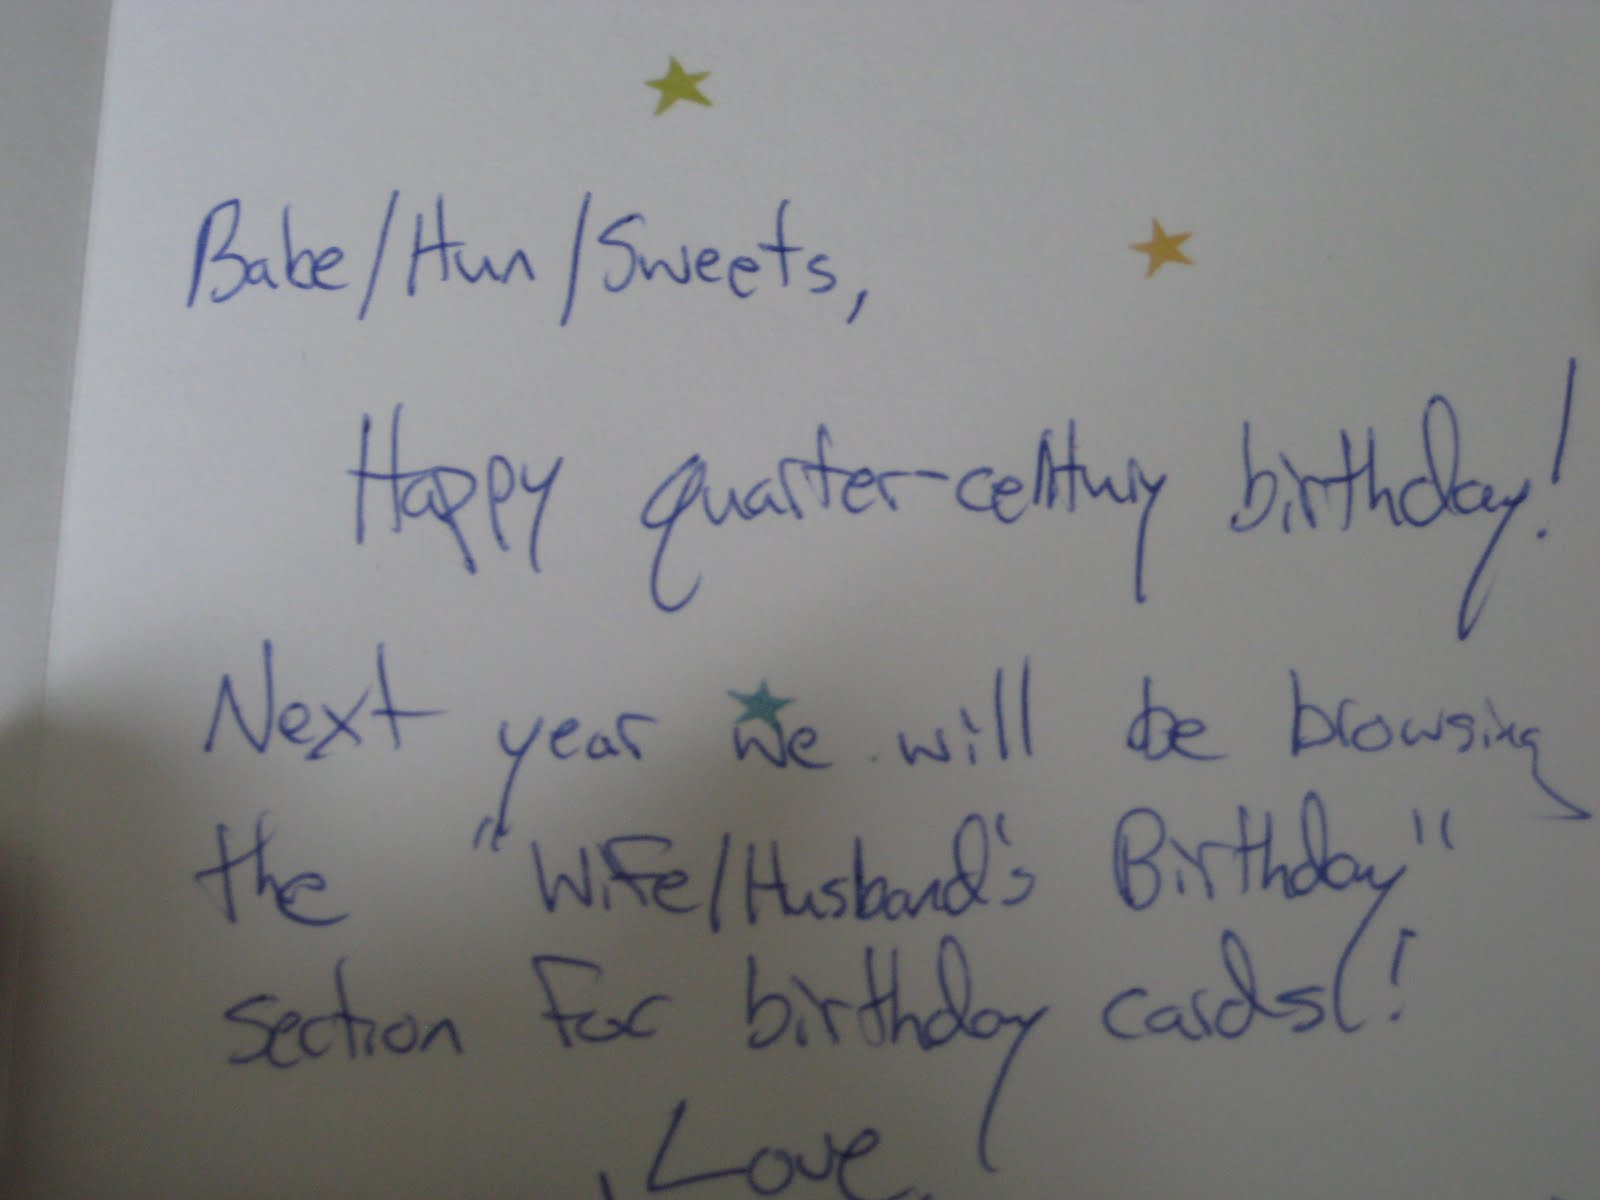 Babe/Hun/Sweets,
Happy quarter-century birthday!
Next year we will be browsing
the "Wife/Husband's Birthday"
section for birthday cards!
Love,